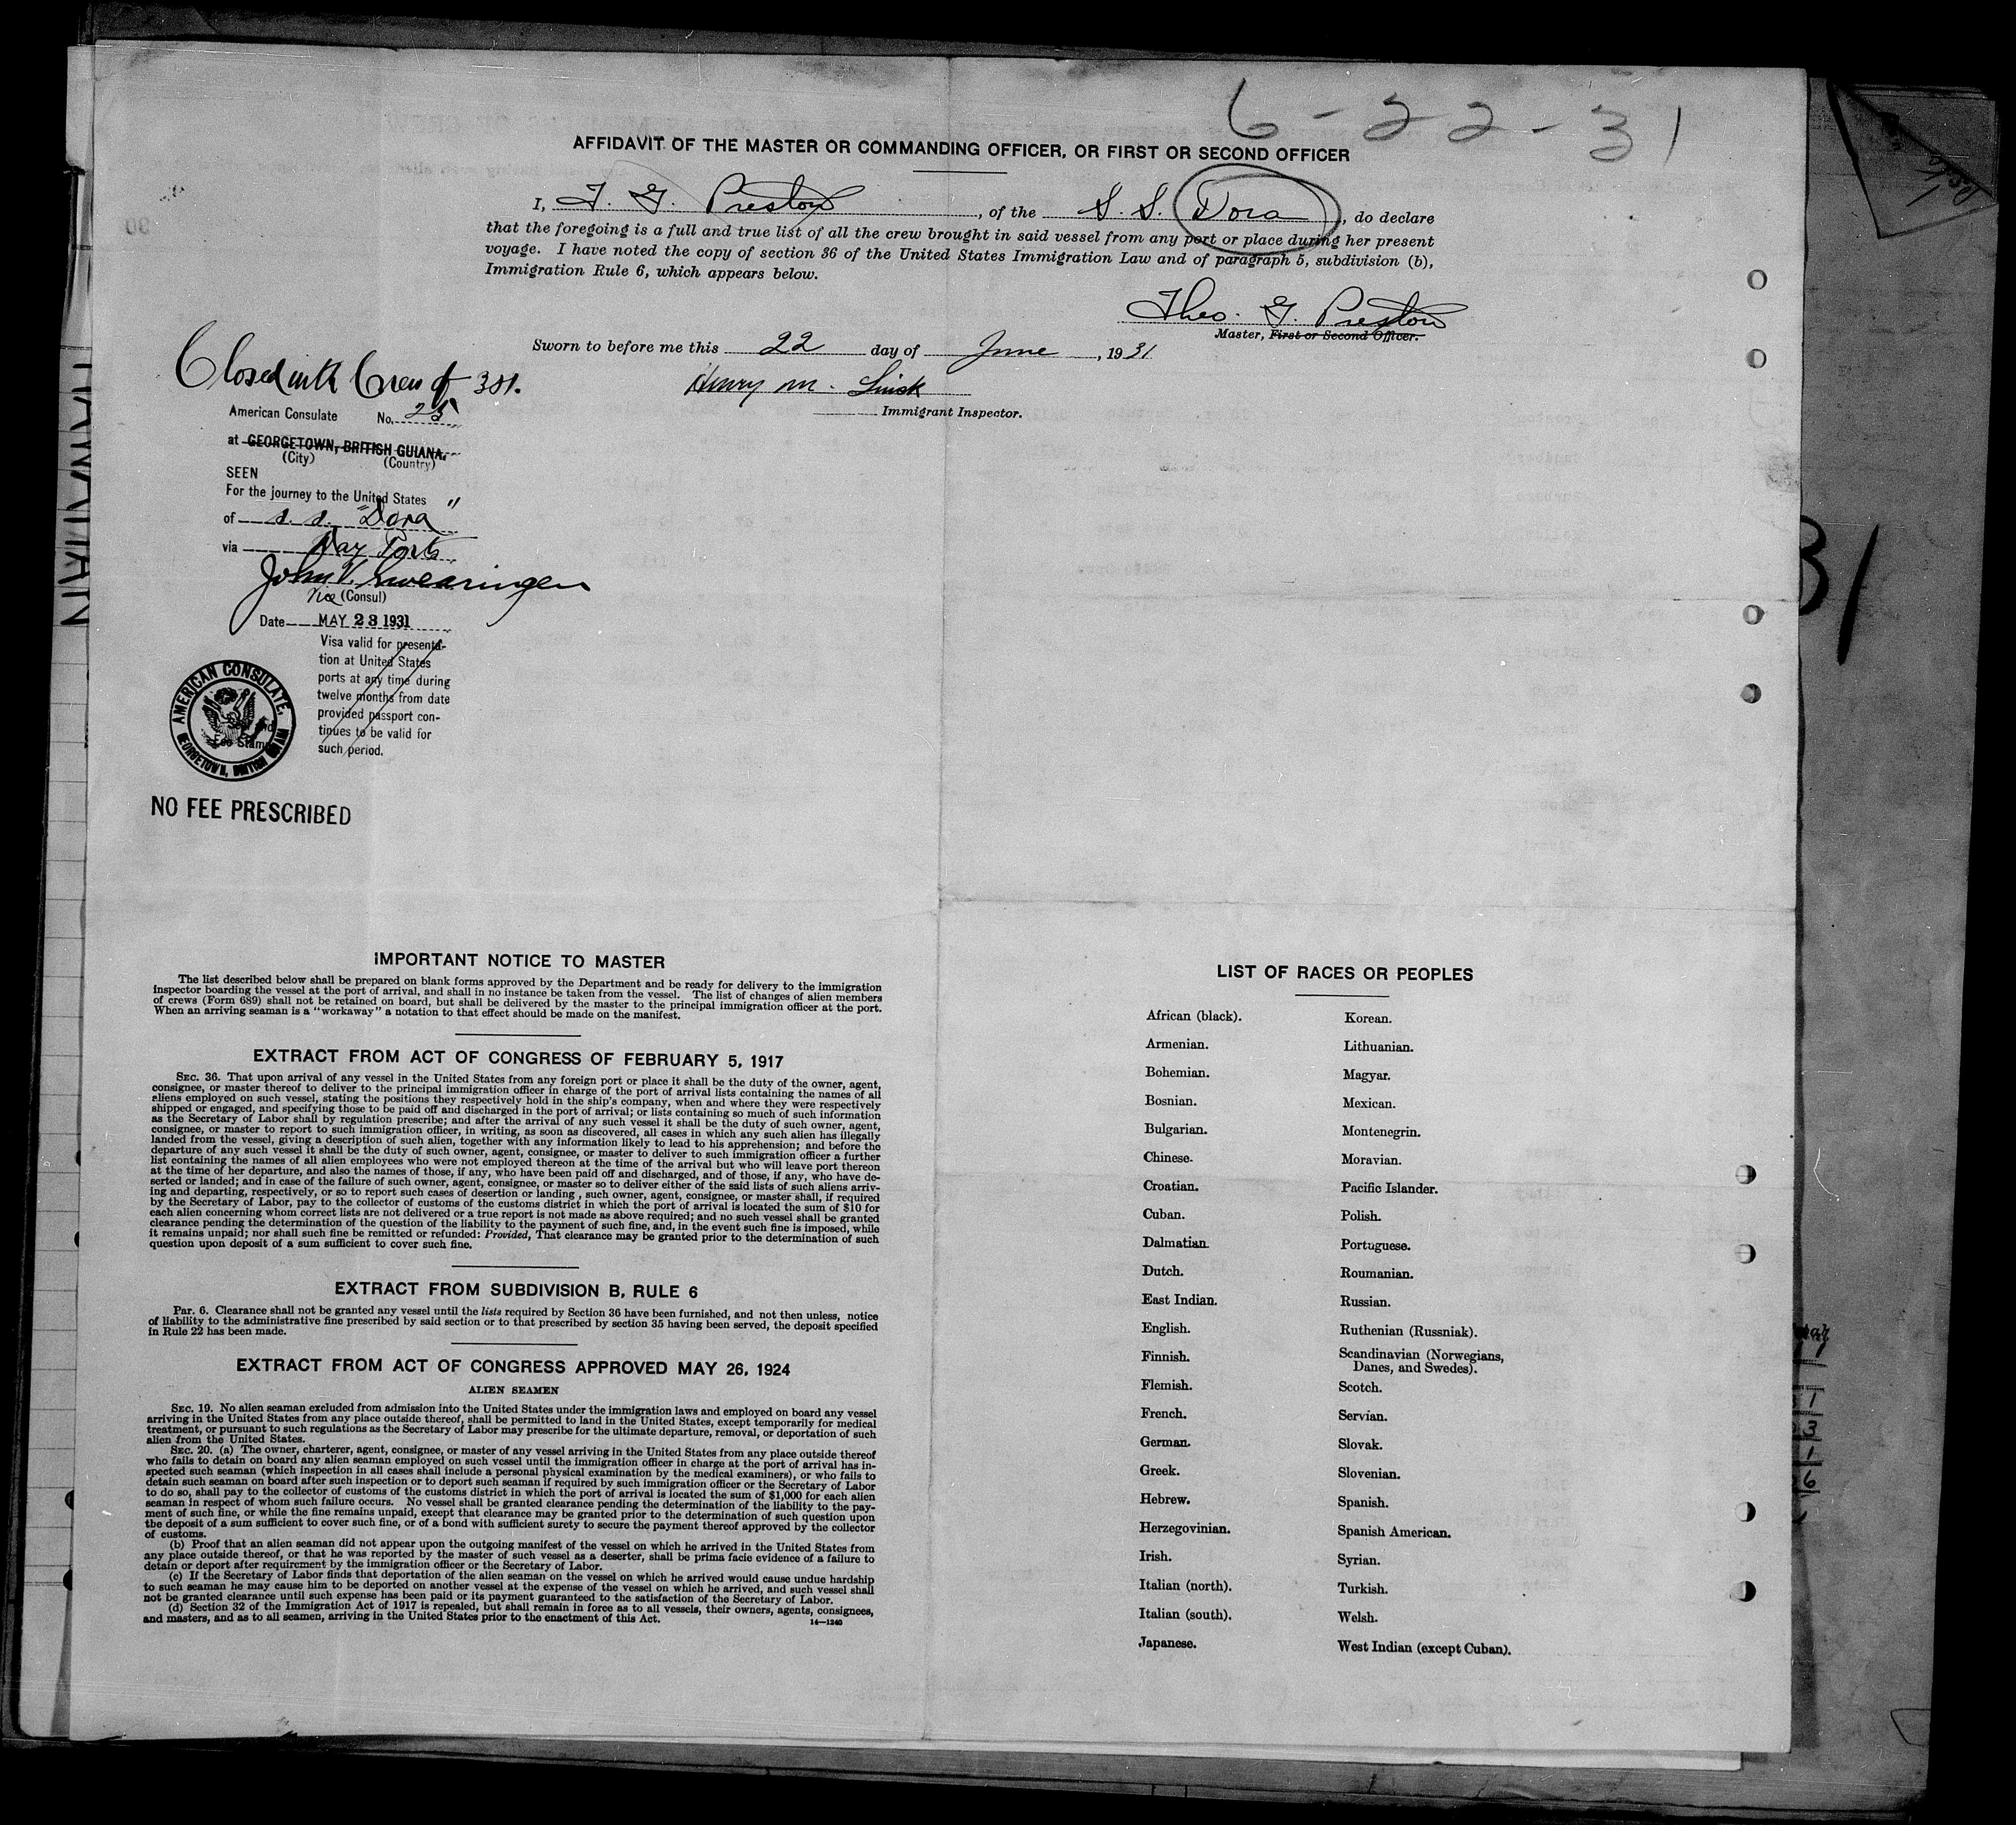 6-22-31
AFFIDAVIT OF THE MASTER OR COMMANDING OFFICER, OR FIRST OR SECOND OFFICER
I, T. G. Preston, of the S. S. Dora, do declare
that the foregoing is a full and true list of all the crew brought in said vessel from any port or place during her present
voyage. I have noted the copy of section 36 of the United States Immigration Law and of paragraph 5, subdivision (b),
Immigration Rule 6, which appears below.
Theo. G. Preston
Master, First or Second Officer.
Sworn to before me this 22 day of June, 1931
Henry M.
Immigrant Inspector.
Closed with Crew of 31.
American Consulate No. 25
at GEORGETOWN, BRITISH GUIANA.
(City) (Country)
SEEN
For the journey to the United States
of s. s. "Dora"
via Way Ports
John V. Swearingen
Vice (Consul)
Date MAY 23 1931
Visa valid for presenta-
tion at United States
ports at any time during
twelve months from date
provided passport con-
tinues to be valid for
such period.
AMERICAN CONSULATE,
GEORGETOWN, BRITISH GUIANA
Fee Stamp
NO FEE PRESCRIBED
IMPORTANT NOTICE TO MASTER
The list described below shall be prepared on blank forms approved by the Department and be ready for delivery to the immigration
inspector boarding the vessel at the port of arrival, and shall in no instance be taken from the vessel. The list of changes of alien members
of crews (Form 689) shall not be retained on board, but shall be delivered by the master to the principal immigration officer at the port.
When an arriving seaman is a "workaway" a notation to that effect should be made on the manifest.
EXTRACT FROM ACT OF CONGRESS OF FEBRUARY 5, 1917
SEC. 36. That upon arrival of any vessel in the United States from any foreign port or place it shall be the duty of the owner, agent,
consignee, or master thereof to deliver to the principal immigration officer in charge of the port of arrival lists containing the names of all
aliens employed on such vessel, stating the positions they respectively hold in the ship's company, when and where they were respectively
shipped or engaged, and specifying those to be paid off and discharged in the port of arrival; or lists containing so much of such information
as the Secretary of Labor shall by regulation prescribe; and after the arrival of any such vessel it shall be the duty of such owner, agent,
consignee, or master to report to such immigration officer, in writing, as soon as discovered, all cases in which any such alien has illegally
landed from the vessel, giving a description of such alien, together with any information likely to lead to his apprehension; and before the
departure of any such vessel it shall be the duty of such owner, agent, consignee, or master to deliver to such immigration officer a further
list containing the names of all alien employees who were not employed thereon at the time of the arrival but who will leave port thereon
at the time of her departure, and also the names of those, if any, who have been paid off and discharged, and of those, if any, who have de-
serted or landed; and in case of the failure of such owner, agent, consignee, or master so to deliver either of the said lists of such aliens arriv-
ing and departing, respectively, or so to report such cases of desertion or landing , such owner, agent, consignee, or master shall, if required
by the Secretary of Labor, pay to the collector of customs of the customs district in which the port of arrival is located the sum of $10 for
each alien concerning whom correct lists are not delivered or a true report is not made as above required; and no such vessel shall be granted
clearance pending the determination of the question of the liability to the payment of such fine, and, in the event such fine is imposed, while
it remains unpaid; nor shall such fine be remitted or refunded: Provided, That clearance may be granted prior to the determination of such
question upon deposit of a sum sufficient to cover such fine.
EXTRACT FROM SUBDIVISION B, RULE 6
Par. 6. Clearance shall not be granted any vessel until the lists required by Section 36 have been furnished, and not then unless, notice
of liability to the administrative fine prescribed by said section or to that prescribed by section 35 having been served, the deposit specified
in Rule 22 has been made.
EXTRACT FROM ACT OF CONGRESS APPROVED MAY 26, 1924
ALIEN SEAMEN
SEC. 19. No alien seaman excluded from admission into the United States under the immigration laws and employed on board any vessel
arriving in the United States from any place outside thereof, shall be permitted to land in the United States, except temporarily for medical
treatment, or pursuant to such regulations as the Secretary of Labor may prescribe for the ultimate departure, removal, or deportation of such
alien from the United States.
SEC. 20. (a) The owner, charterer, agent, consignee, or master of any vessel arriving in the United States from any place outside thereof
who fails to detain on board any alien seaman employed on such vessel until the immigration officer in charge at the port of arrival has in-
spected such seaman (which inspection in all cases shall include a personal physical examination by the medical examiners), or who fails to
detain such seaman on board after such inspection or to deport such seaman if required by such immigration officer or the Secretary of Labor
to do so, shall pay to the collector of customs of the customs district in which the port of arrival is located the sum of $1,000 for each alien
seaman in respect of whom such failure occurs. No vessel shall be granted clearance pending the determination of the liability to the pay-
ment of such fine, or while the fine remains unpaid, except that clearance may be granted prior to the determination of such question upon
the deposit of a sum sufficient to cover such fine, or of a bond with sufficient surety to secure the payment thereof approved by the collector
of customs.
(b) Proof that an alien seaman did not appear upon the outgoing manifest of the vessel on which he arrived in the United States from
any place outside thereof, or that he was reported by the master of such vessel as a deserter, shall be prima facie evidence of a failure to
detain or deport after requirement by the immigration officer or the Secretary of Labor.
(c) If the Secretary of Labor finds that deportation of the alien seaman on the vessel on which he arrived would cause undue hardship
to such seaman he may cause him to be deported on another vessel at the expense of the vessel on which he arrived, and such vessel shall
not be granted clearance until such expense has been paid or its payment guaranteed to the satisfaction of the Secretary of Labor.
(d) Section 32 of the Immigration Act of 1917 is repealed, but shall remain in force as to all vessels, their owners, agents, consignees,
and masters, and as to all seamen, arriving in the United States prior to the enactment of this Act.
14—1240
LIST OF RACES OR PEOPLES
African (black). Korean.
Armenian. Lithuanian.
Bohemian. Magyar.
Bosnian. Mexican.
Bulgarian. Montenegrin.
Chinese. Moravian.
Croatian. Pacific Islander.
Cuban. Polish.
Dalmatian. Portuguese.
Dutch. Roumanian.
East Indian. Russian.
English. Ruthenian (Russniak).
Finnish. Scandinavian (Norwegians,
Danes, and Swedes).
Flemish. Scotch.
French. Servian.
German. Slovak.
Greek. Slovenian.
Hebrew. Spanish.
Herzegovinian. Spanish American.
Irish. Syrian.
Italian (north). Turkish.
Italian (south). Welsh.
Japanese. West Indian (except Cuban).